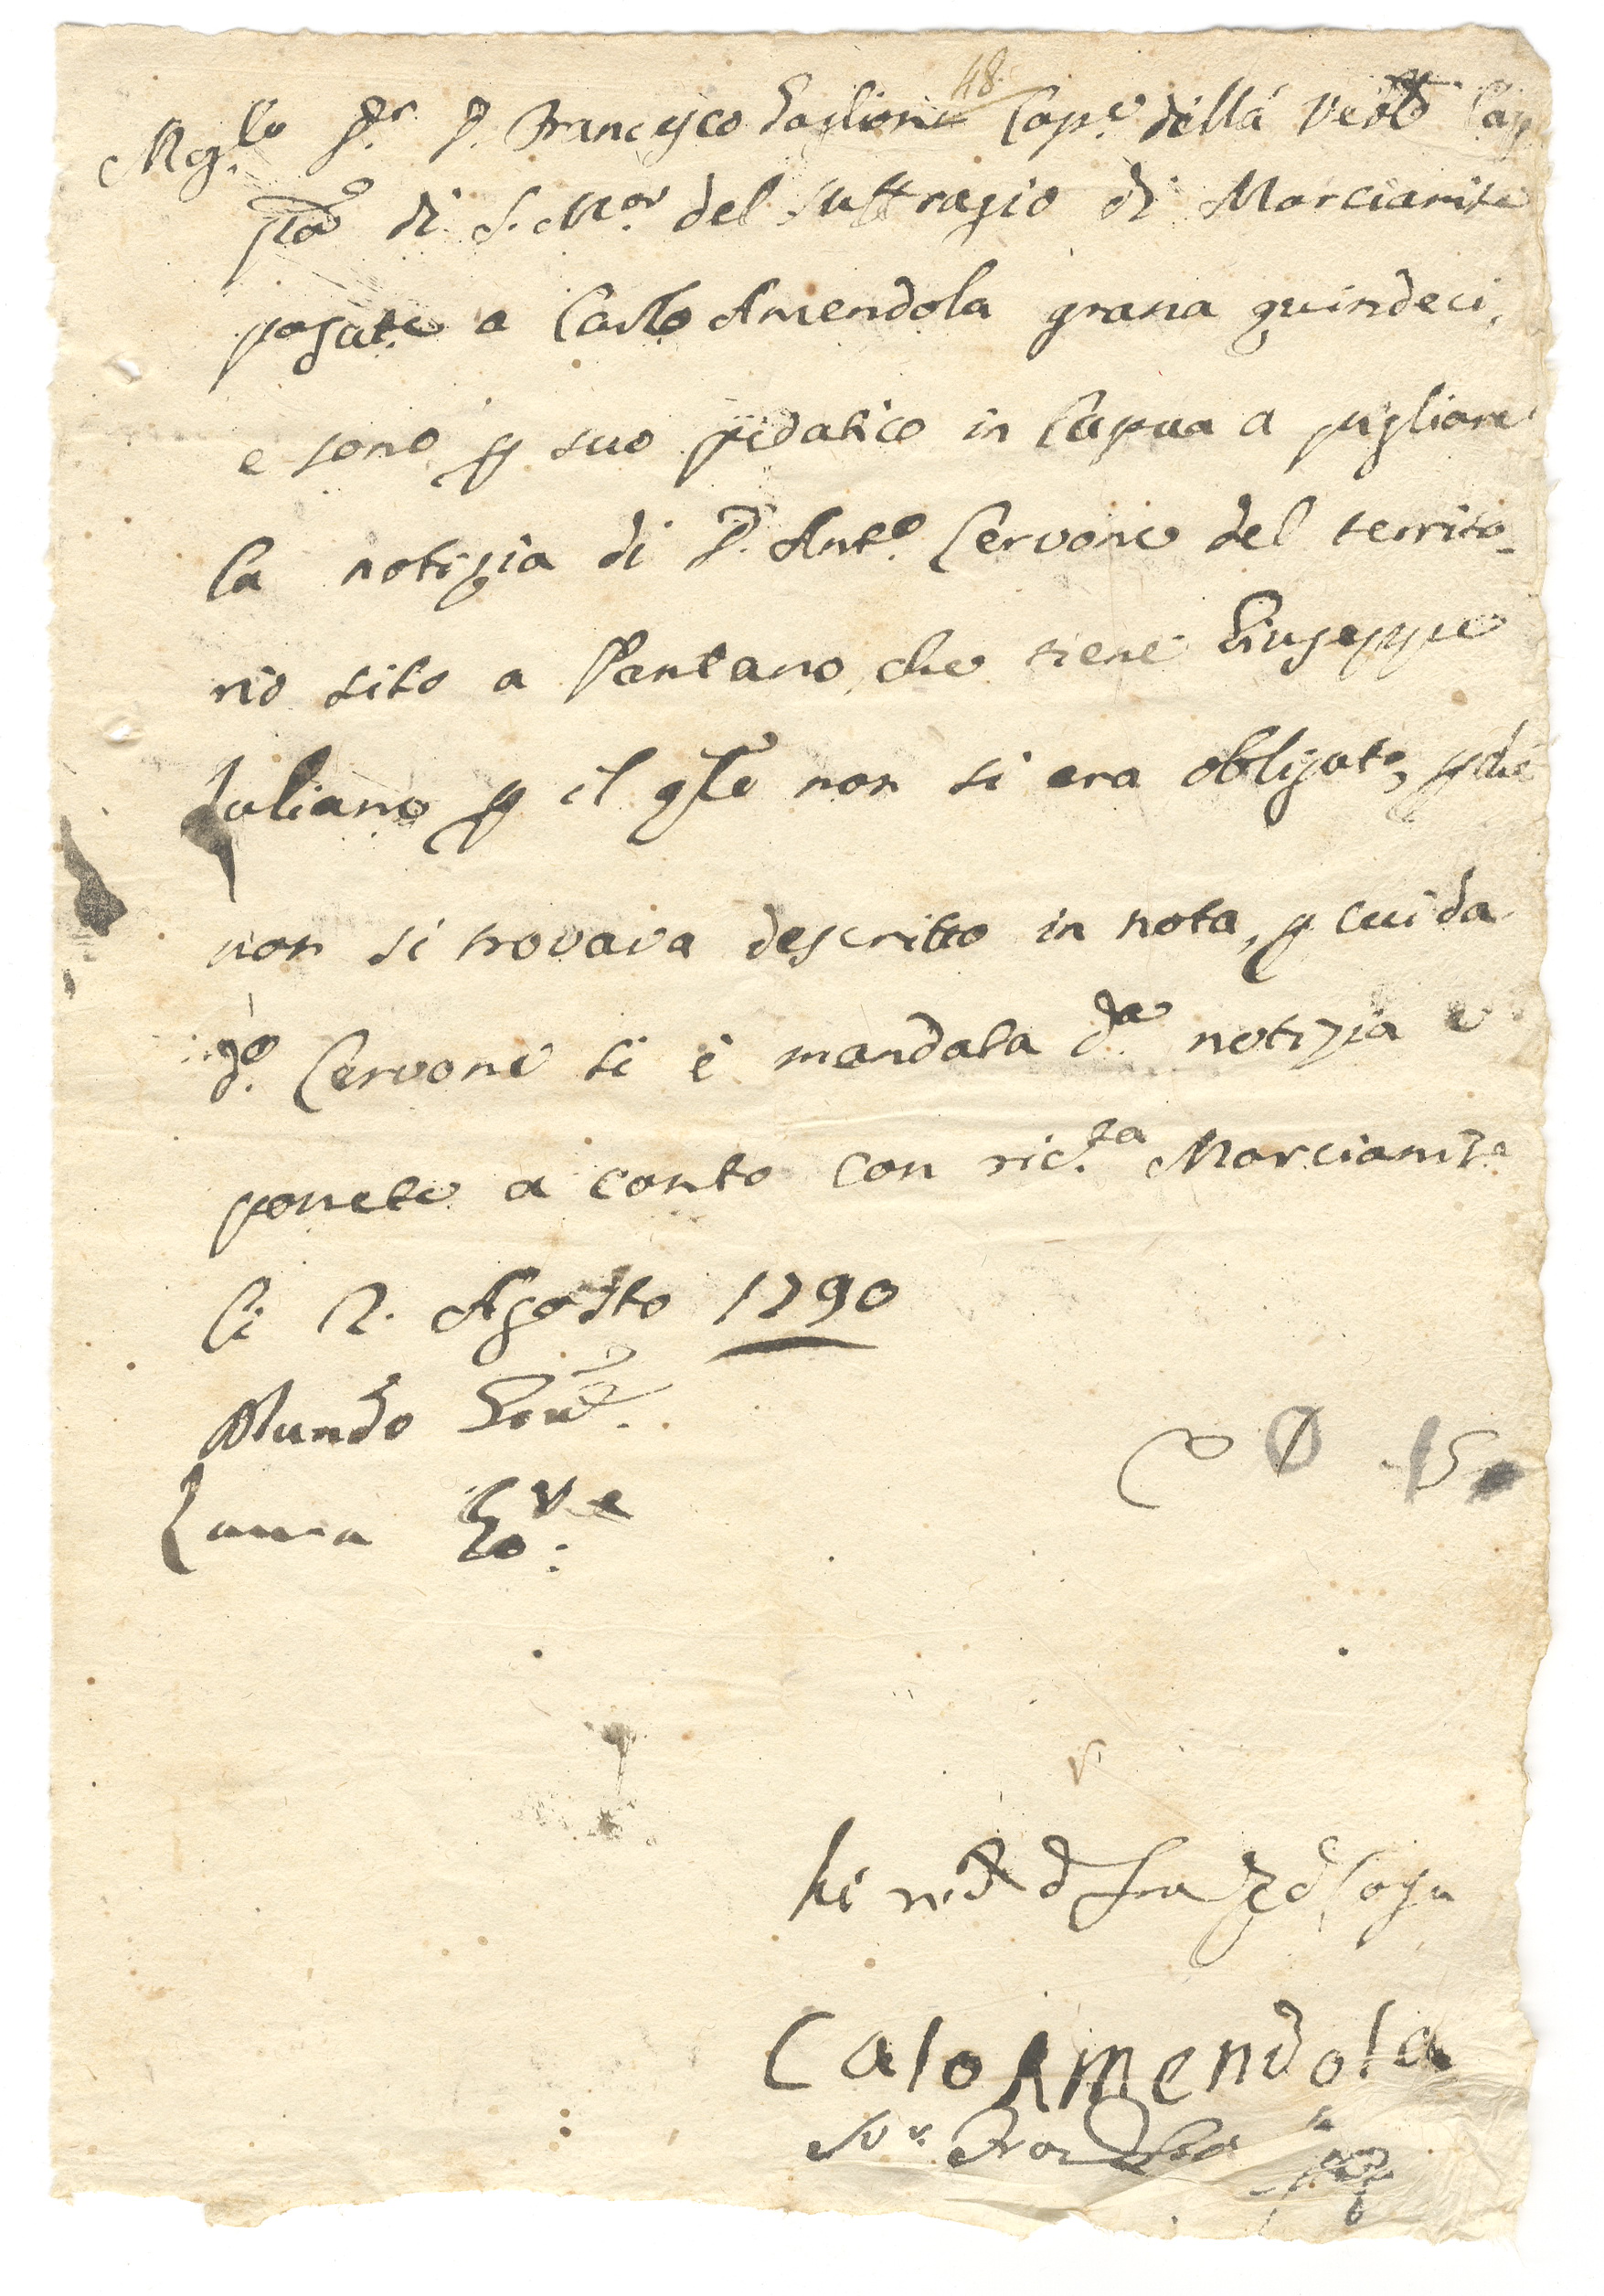 48
Mag.co Sr. D. Francesco Foglione Cap.e della Vest. Cap
pa di S. Mar. del Suffragio di Marcianise
pagate a Carlo Amendola grana quindeci,
e sono p suo pedatico in Capua a pigliare
la notizia di D. Ant.o Cervone del territo-
rio sito a Pantano, che tiene Giuseppe
Juliano p il qle non si era obligato, pche
non si trovava descritto in nota, p cui da
do. Cervone si è mandata da. notizia e
ponete a conto con ric.ta Marcianise
li 2. Agosto 1790
Mundo Gov.
Lauria Go.ve
15
Calo Amendola